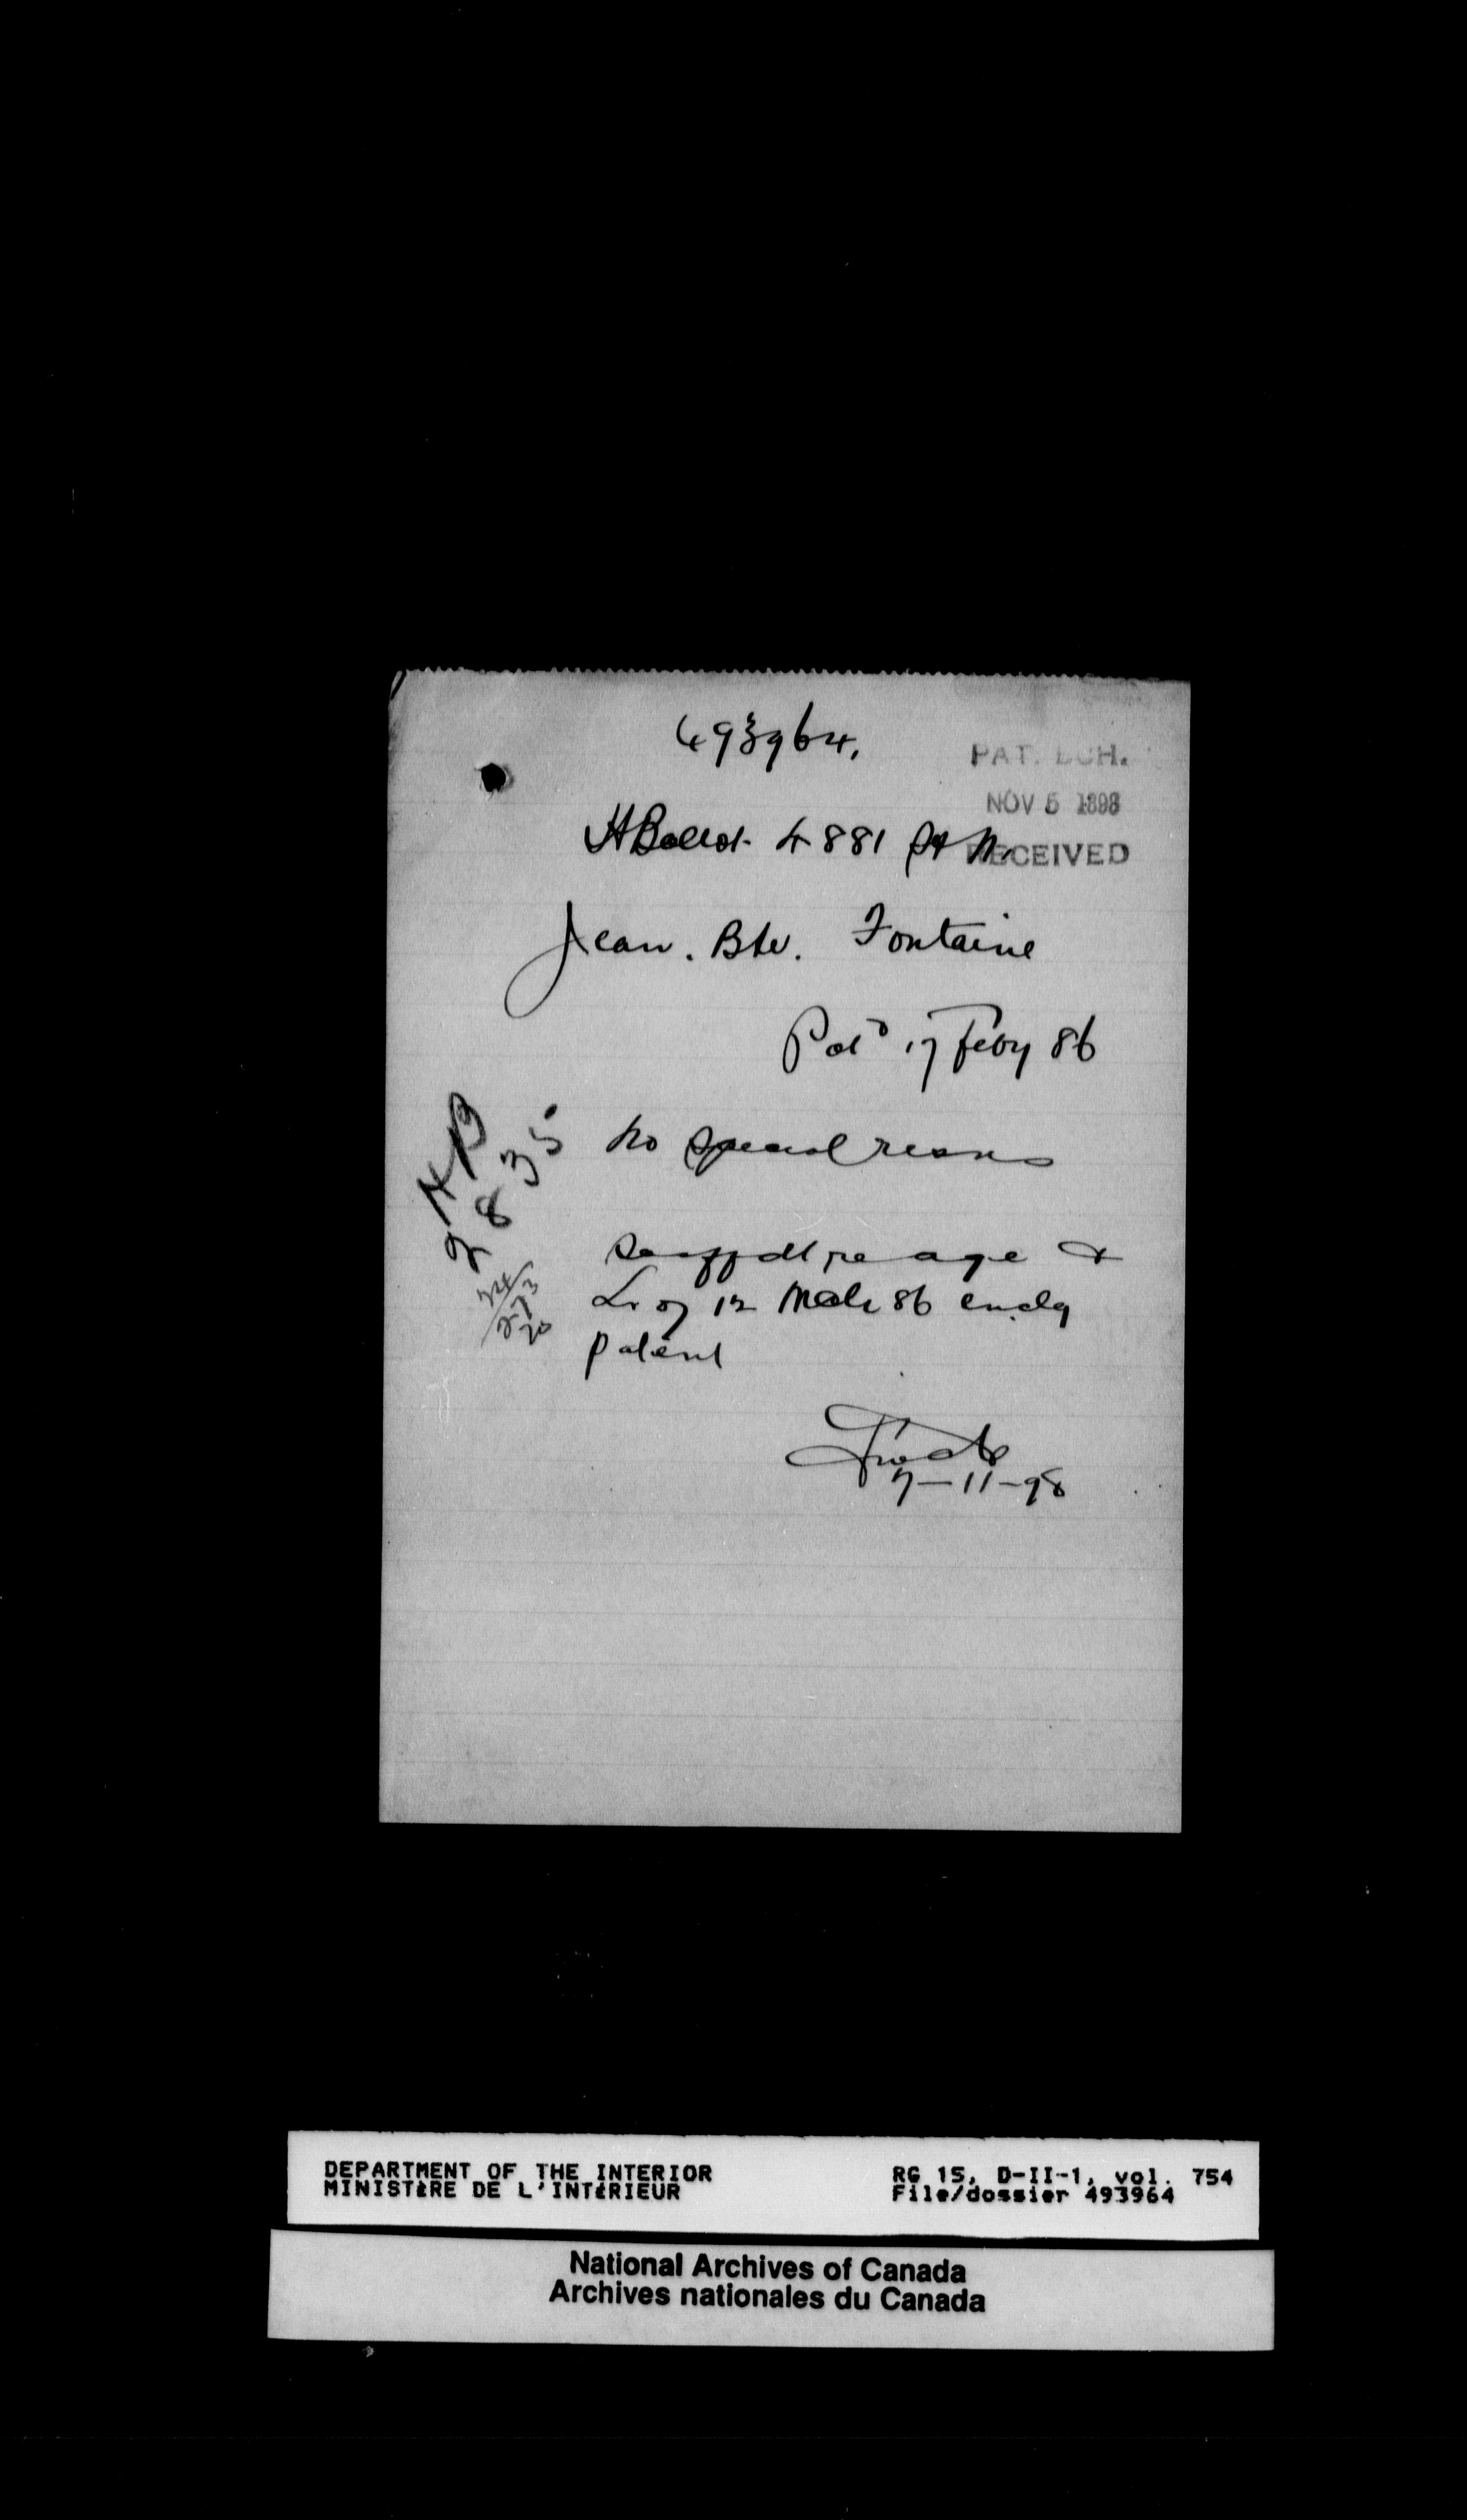 493964.
PAT. BCH.
NOV 5 1898
RECEIVED
4881
Jean. Bte. Fontaine
Patd 17 Feby 86
No special reasons
HB
2835
See affdt re age &
Lr of 12 Mch 86 encdg
patent
7-11-98
DEPARTMENT OF THE INTERIOR
MINISTèRE DE L'INTéRIEUR
RG 15, D-II-1, vol. 754
File/dossier 493964
National Archives of Canada
Archives nationales du Canada